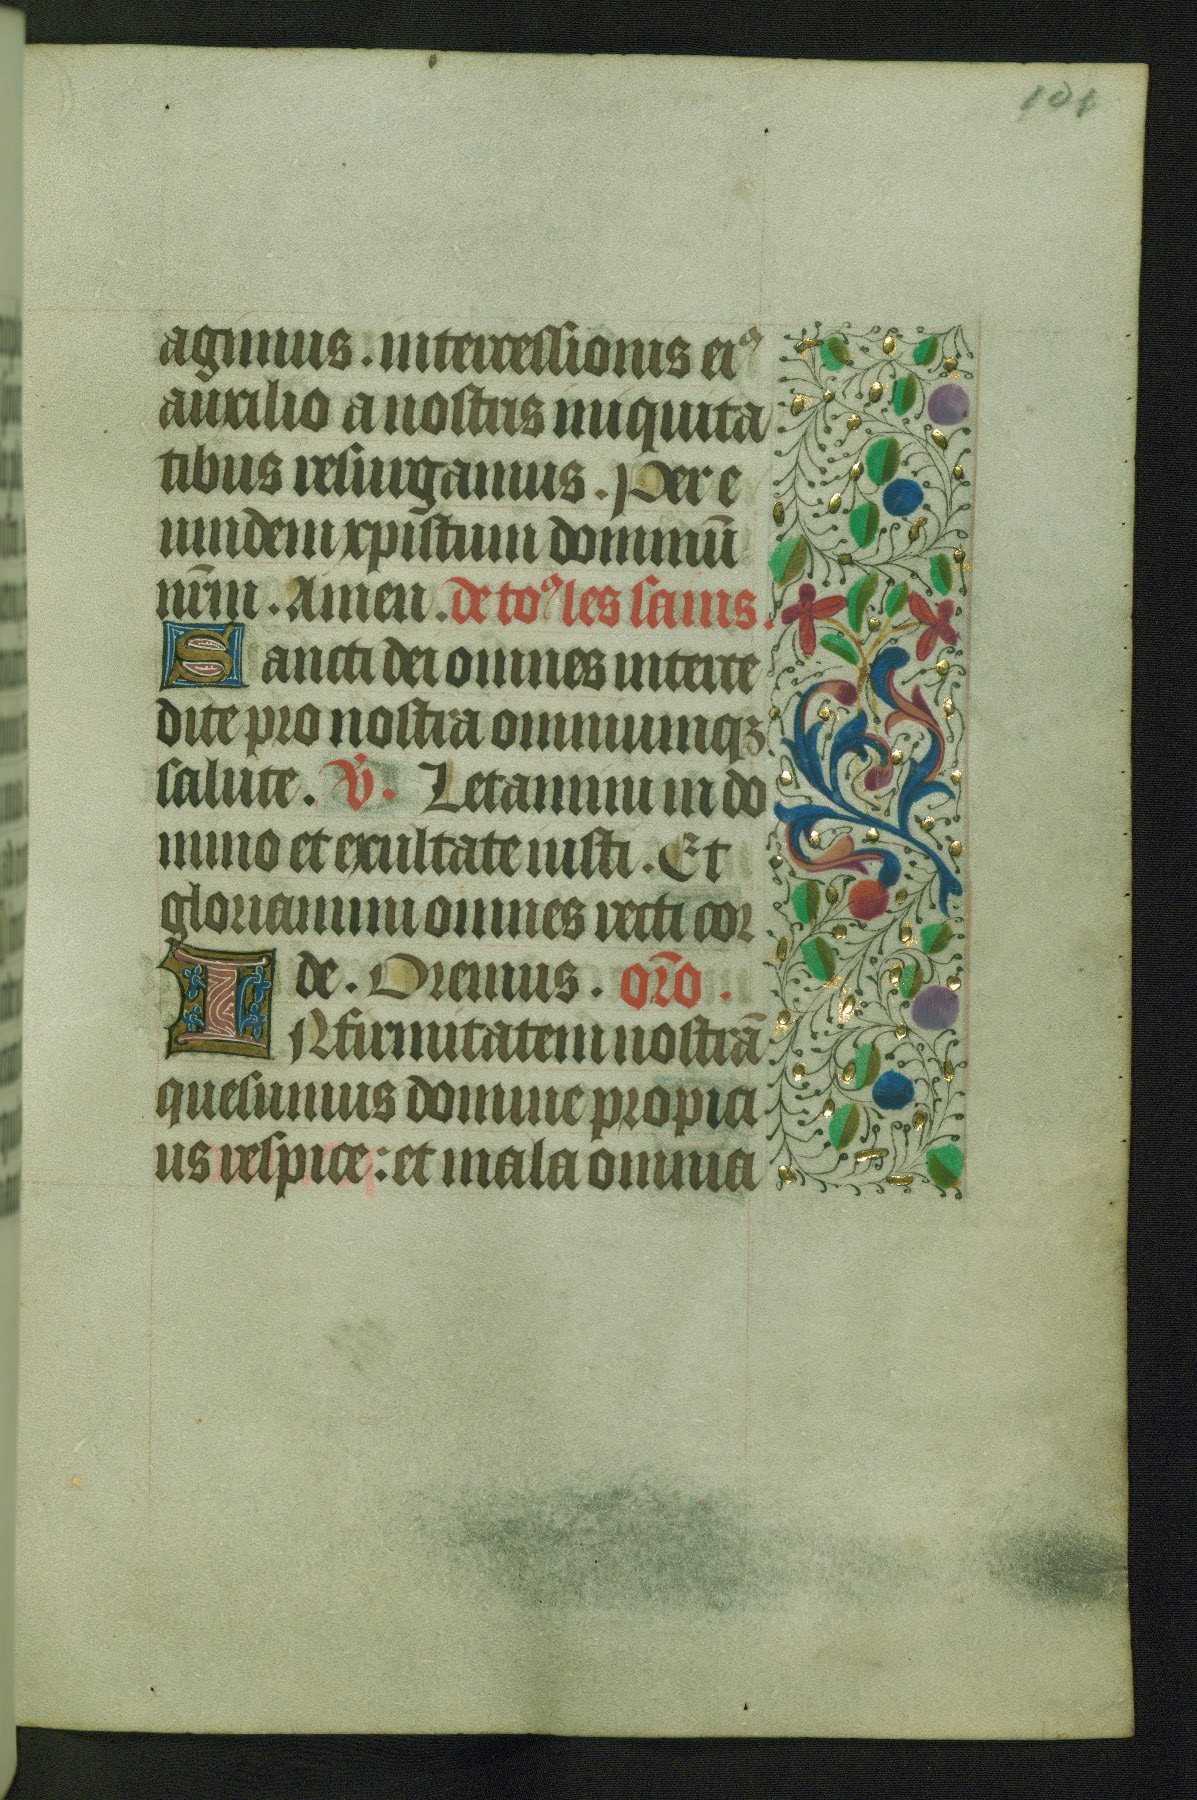 101
agimus. intercessionis eiꝰ
auxilio a nostris iniquita
tibus resurgamus. Per e
undem xpistum dominū
nr̄m. Amen. de toꝰ les sains.
Sancti dei omnes interce
dite pro nostra omniumqꝫ
salute. V̄. Letamini in do
mino et exultate iusti. Et
gloriamini omnes recti cor
de. Oremus. orō.
INfirmitatem nostrā
quesumus domine propici
us respice: et mala omnia